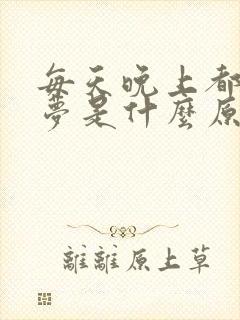 每天晚上都
夢是什麼原
離離原上草